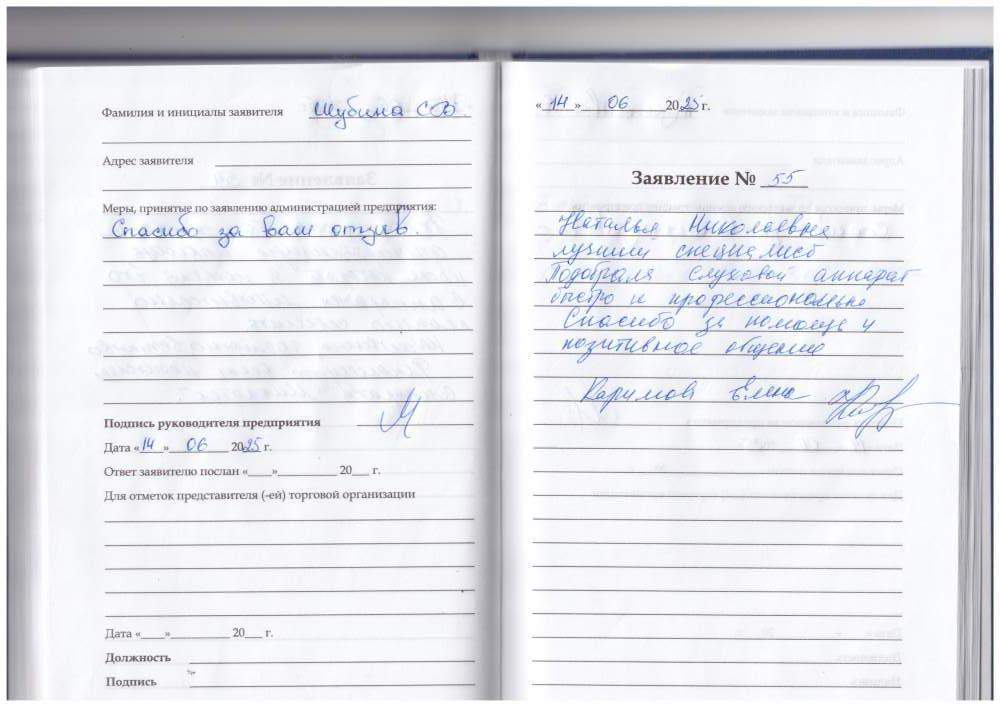 Фамилия и инициалы заявителя Шубина С.В.
Адрес заявителя
Меры, принятые по заявлению администрацией предприятия:
Спасибо за Ваш отзыв.
Подпись руководителя предприятия
Дата «14» 06 2025 г.
Ответ заявителю послан «___»__________ 20___ г.
Для отметок представителя (-ей) торговой организации
Дата «____»__________ 20___ г.
Должность
Подпись
«14» 06 2025 г.
Заявление № 55
Наталья Николаевна
лучший специалист
Подобрала слуховой аппарат
быстро и профессионально
Спасибо за помощь и
позитивное общение
Каримова Елена